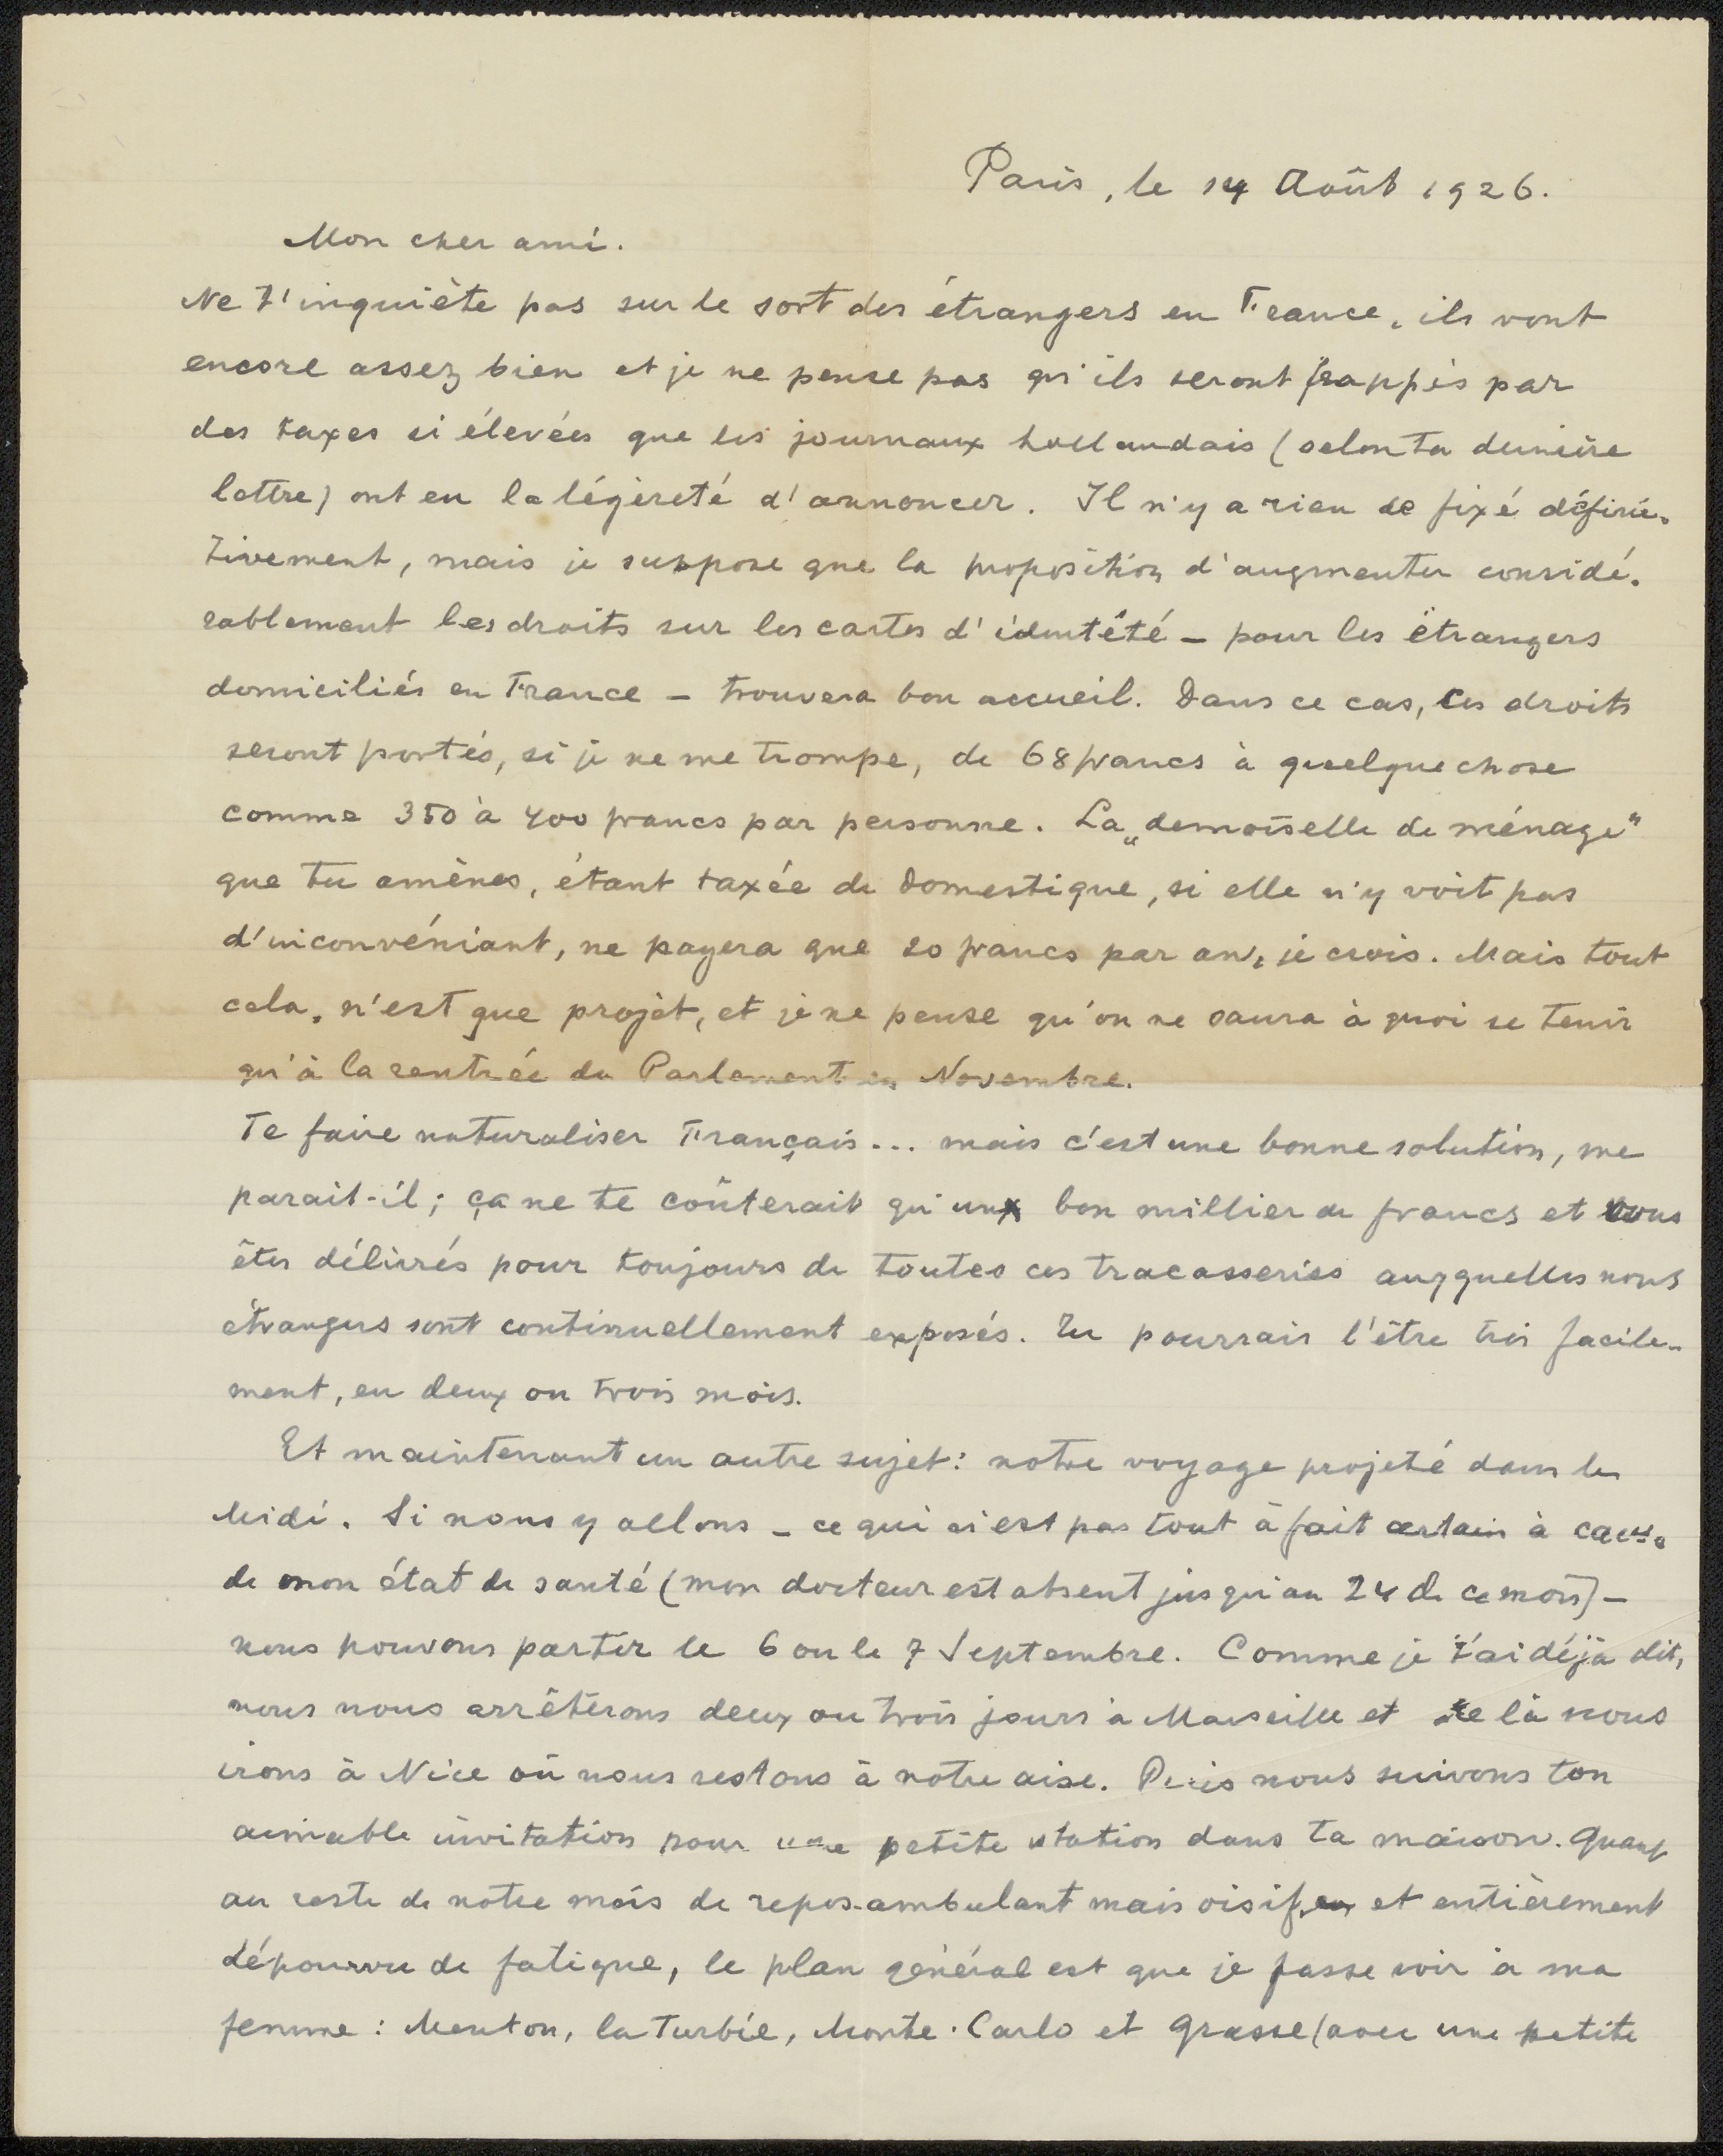 Paris, le 14 Août 1926.
Mon cher ami.
Ne t'inquiète pas sur le sort des étrangers en France, ils vont
encore assez bien et je ne pense pas qu'ils seront frappés par
des taxes si élevées que les journaux hollandais (selon ta dernière
lettre) ont eu la légèreté d'annoncer. Il n'y a rien de fixé défini-
tivement, mais je suppose que la proposition d'augmenter considé-
rablement les droits sur les cartes d'identêté – pour les étrangers
domiciliés en France – trouvera bon accueil. Dans ce cas, ces droits
seront portés, si je ne me trompe, de 68 francs à quelquechose
comme 350 à 400 francs par personne. La „demoiselle de ménage"
que tu amènes, étant taxée de domestique, si elle n'y voit pas
d'inconvéniant, ne payera que 20 francs par an, je crois. Mais tout
cela, n'est que projèt, et je ne pense qu'on ne saura à quoi se tenir
qu'à la rentrée du Parlement en Novembre.
Te faire naturaliser Français... mais c'est une bonne solution, me
parait-il; ça ne te coûterait qu'un bon millier de francs et vous
êtes délivrés pour toujours de toutes ces tracasseries auxquelles nous
étrangers sont continuellement exposés. Tu pourrais l'être très facile-
ment, en deux ou trois mois.
Et maintenant un autre sujet: notre voyage projeté dans le
Midi. Si nous y allons – ce qui n'est pas tout à fait certain à cause
de mon état de santé (mon docteur est absent jusqu'au 24 de ce mois) –
nous pouvons partir le 6 ou le 7 Septembre. Comme je t'ai déjà dit,
nous nous arrêterons deux ou trois jours à Marseille et de là nous
irons à Nice où nous restons à notre aise. Puis nous suivons ton
aimable invitation pour une petite station dans ta maison. Quant
au reste de notre mois de repos-ambulant mais oisif, et entièrement
dépourvu de fatigue, le plan général est que je fasse voir à ma
femme: Menton, la Turbie, Monte-Carlo et Grasse (avec une petite